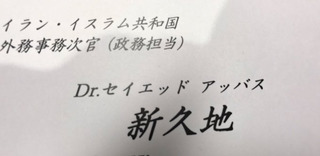 イラン・イスラム共和国
外務事務次官（政務担当）
Dr.セイエッド アッバス
新久地